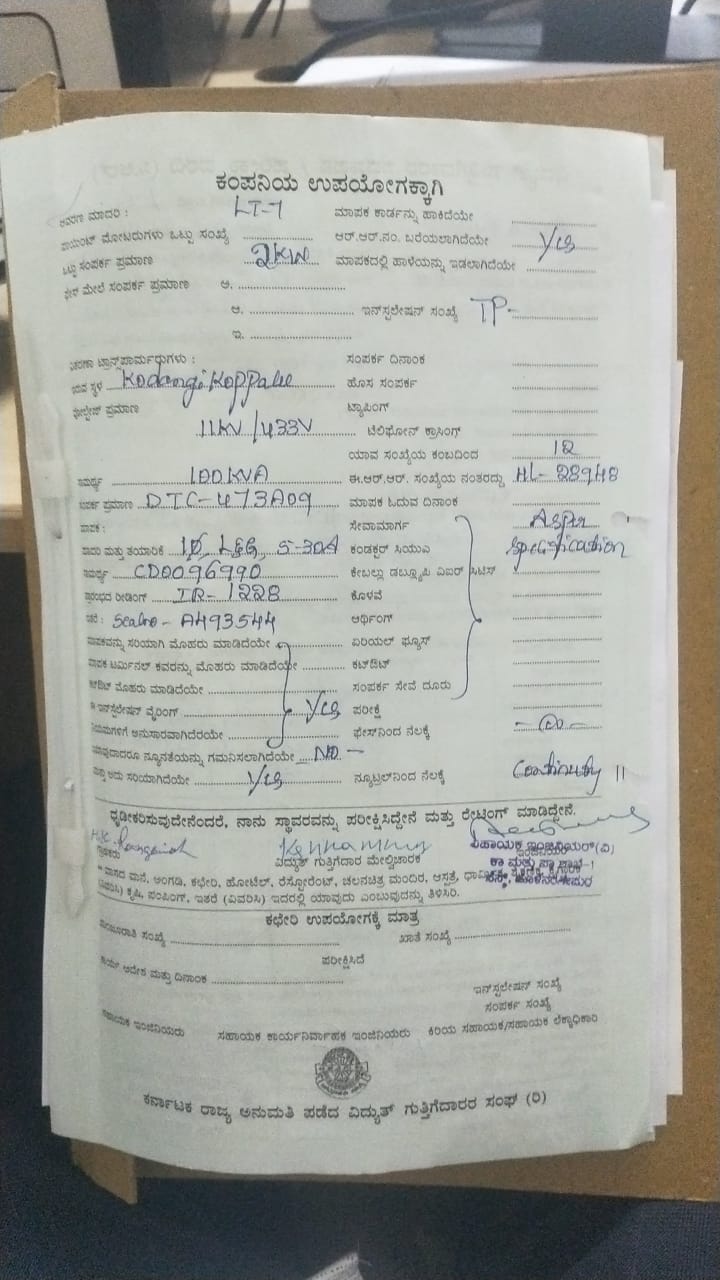 ಕಂಪನಿಯ ಉಪಯೋಗಕ್ಕಾಗಿ
ಮಾದರಿ : LT-7 ಮಾಪಕ ಕಾರ್ಡನ್ನು ಹಾಕಿದೆಯೇ
ಪಾಯಿಂಟ್ ಮೋಟರುಗಳು ಒಟ್ಟು ಸಂಖ್ಯೆ ಆರ್.ಆರ್.ನಂ. ಬರೆಯಲಾಗಿದೆಯೇ Yes
ಒಟ್ಟು ಸಂಪರ್ಕ ಪ್ರಮಾಣ 2KW ಮಾಪಕದಲ್ಲಿ ಹಾಳೆಯನ್ನು ಇಡಲಾಗಿದೆಯೇ
ಮೇಲೆ ಸಂಪರ್ಕ ಪ್ರಮಾಣ ಅ.
ಆ. ಇನ್‌ಸ್ಟಲೇಷನ್ ಸಂಖ್ಯೆ TP-
ಇ.
ಟ್ರಾನ್ಸ್‌ಪಾರ್ಮರುಗಳು : ಸಂಪರ್ಕ ದಿನಾಂಕ
ಸ್ಥಳ Kodangi Koppalu ಹೊಸ ಸಂಪರ್ಕ
ವೋಲ್ಟೇಜ್ ಪ್ರಮಾಣ ಟ್ಯಾಪಿಂಗ್
11KV/433V ಟೆಲಿಫೋನ್ ಕ್ರಾಸಿಂಗ್
ಯಾವ ಸಂಖ್ಯೆಯ ಕಂಬದಿಂದ 12
ಸಾಮರ್ಥ್ಯ 100KVA ಈ.ಆರ್.ಆರ್. ಸಂಖ್ಯೆಯ ನಂತರದ್ದು HL-28948
ಸಂಪರ್ಕ ಪ್ರಮಾಣ DTC-473A09 ಮಾಪಕ ಓದುವ ದಿನಾಂಕ
ಮಾಪಕ : ಸೇವಾಮಾರ್ಗ Asper
ಮಾದರಿ ಮತ್ತು ತಯಾರಿಕೆ 1Ø, L&G, 5-30A ಕಂಡಕ್ಟರ್ ಸಿಯುಎ Specification
ಸಾಮರ್ಥ್ಯ CD0096990 ಕೇಬಲ್ಲು ಡಬ್ಲ್ಯೂಪಿ ಏಐಆರ್ ಸಿಟಿಸ್
ಪ್ರಾರಂಭದ ರೀಡಿಂಗ್ IR-1228 ಕೊಳವೆ
ಇತರೆ : Sealno - A493544 ಅರ್ಥಿಂಗ್
ಮಾಪಕವನ್ನು ಸರಿಯಾಗಿ ಮೊಹರು ಮಾಡಿದೆಯೇ ಏರಿಯಲ್ ಫ್ಯೂಸ್
ಮಾಪಕ ಟರ್ಮಿನಲ್ ಕವರನ್ನು ಮೊಹರು ಮಾಡಿದೆಯೇ ಕಟ್‌ಔಟ್
ಕಟ್‌ಔಟ್ ಮೊಹರು ಮಾಡಿದೆಯೇ ಸಂಪರ್ಕ ಸೇವೆ ದೂರು
ಈ ಇನ್‌ಸ್ಟಲೇಷನ್ ವೈರಿಂಗ್ Yes ಪರೀಕ್ಷೆ
ನಿಯಮಗಳಿಗೆ ಅನುಸಾರವಾಗಿದೆರೆಯೇ ಫೇಸ್‌ನಿಂದ ನೆಲಕ್ಕೆ - ∞ -
ಯಾವುದಾದರೂ ನ್ಯೂನತೆಯನ್ನು ಗಮನಿಸಲಾಗಿದೆಯೇ NO -
ಮತ್ತು ಅದು ಸರಿಯಾಗಿದೆಯೇ Yes ನ್ಯೂಟ್ರಲ್‌ನಿಂದ ನೆಲಕ್ಕೆ Continuty
ಧೃಡೀಕರಿಸುವುದೇನೆಂದರೆ, ನಾನು ಸ್ಥಾವರವನ್ನು ಪರೀಕ್ಷಿಸಿದ್ದೇನೆ ಮತ್ತು ರೇಟಿಂಗ್ ಮಾಡಿದ್ದೇನೆ.
ಗ್ರಾಹಕರು ವಿದ್ಯುತ್ ಗುತ್ತಿಗೆದಾರ ಮೇಲ್ವಿಚಾರಕ ಸಹಾಯಕ ಇಂಜಿನಿಯರ್(ವಿ)
* ವಾಸದ ಮನೆ, ಅಂಗಡಿ, ಕಛೇರಿ, ಹೋಟೆಲ್, ರೆಸ್ಟೋರೆಂಟ್, ಚಲನಚಿತ್ರ ಮಂದಿರ, ಆಸ್ಪತ್ರೆ,
(ವಿವರಿಸಿ) ಕೃಷಿ, ಪಂಪಿಂಗ್, ಇತರೆ (ವಿವರಿಸಿ) ಇದರಲ್ಲಿ ಯಾವುದು ಎಂಬುವುದನ್ನು ತಿಳಿಸಿರಿ.
ಕಛೇರಿ ಉಪಯೋಗಕ್ಕೆ ಮಾತ್ರ
ಮಂಜೂರಾತಿ ಸಂಖ್ಯೆ ಖಾತೆ ಸಂಖ್ಯೆ
ಪರೀಕ್ಷಿಸಿದೆ
ಕಾರ್ಯ ಆದೇಶ ಮತ್ತು ದಿನಾಂಕ
ಇನ್‌ಸ್ಟಲೇಷನ್ ಸಂಖ್ಯೆ
ಸಂಪರ್ಕ ಸಂಖ್ಯೆ
ಸಹಾಯಕ ಇಂಜಿನಿಯರು ಸಹಾಯಕ ಕಾರ್ಯನಿರ್ವಾಹಕ ಇಂಜಿನಿಯರು ಕಿರಿಯ ಸಹಾಯಕ/ಸಹಾಯಕ ಲೆಕ್ಕಾಧಿಕಾರಿ
ಕರ್ನಾಟಕ ರಾಜ್ಯ ಅನುಮತಿ ಪಡೆದ ವಿದ್ಯುತ್ ಗುತ್ತಿಗೆದಾರರ ಸಂಘ (ರಿ)